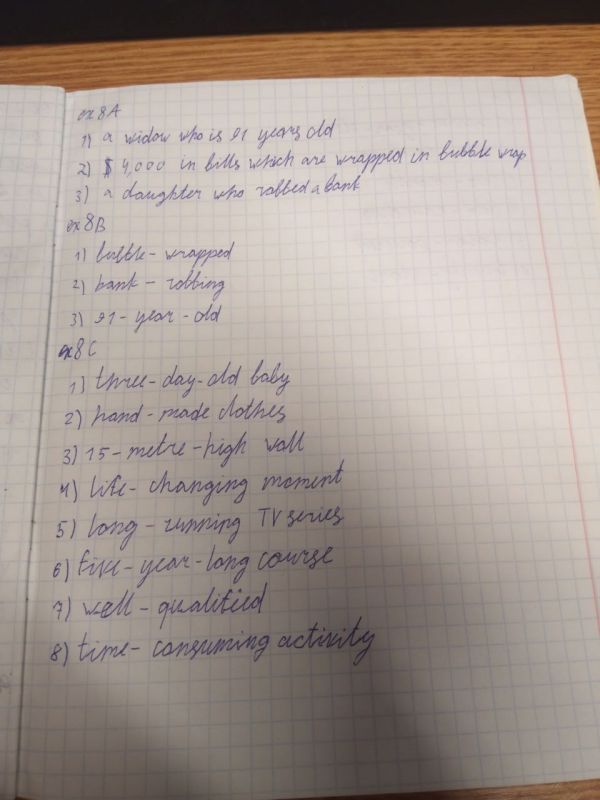 ex 8A
1) a widow who is 91 years old
2) $ 4,000 in bills which are wrapped in bubble wrap
3) a daughter who robbed a bank
ex 8B
1) bubble - wrapped
2) bank - robbing
3) 91 - year - old
ex 8C
1) three - day - old baby
2) hand - made clothes
3) 15 - metre - high wall
4) life - changing moment
5) long - running TV series
6) five - year - long course
7) well - qualified
8) time - consuming activity